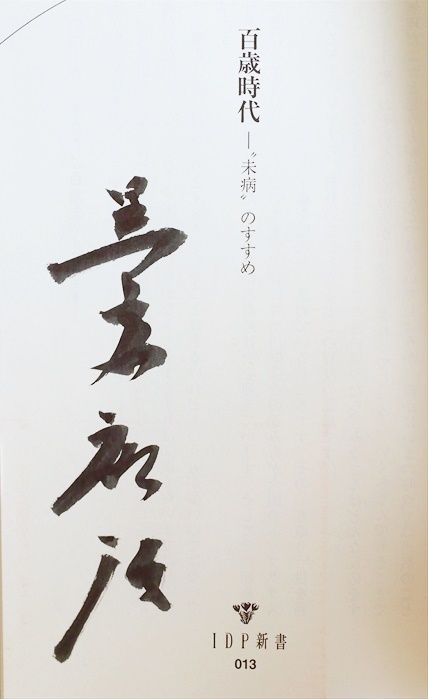 百歳時代
―〝未病〟のすすめ
IDP新書
013